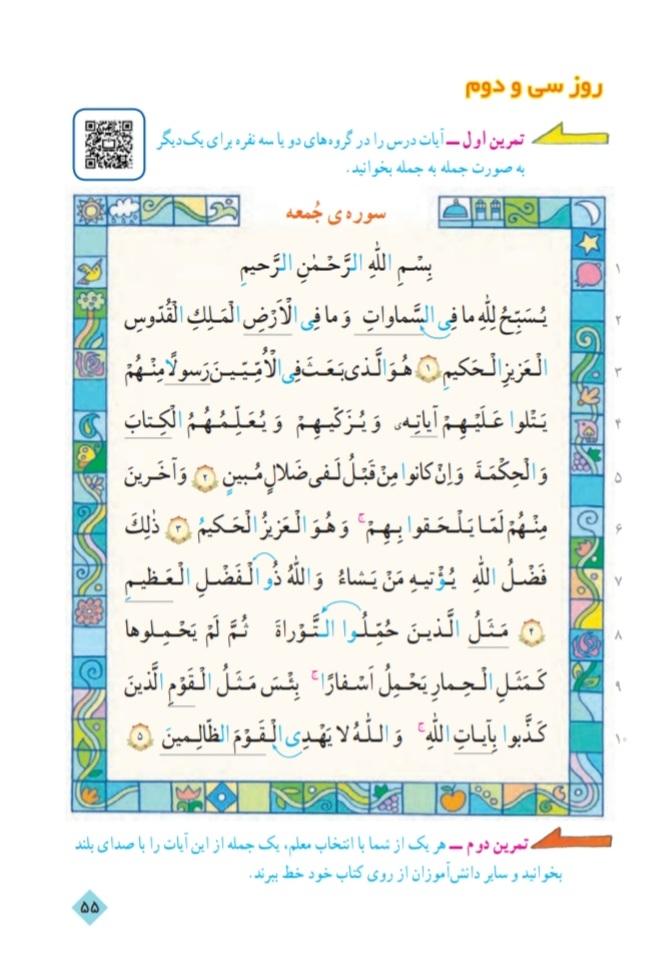 روز سی و دوم
تمرین اول ــ آیات درس را در گروه‌های دو یا سه نفره برای یک‌دیگر
به صورت جمله به جمله بخوانید.
سوره‌ی جُمعه
بِسْمِ اللهِ الرَّحْمٰنِ الرَّحیمِ ۱
یُسَبِّحُ لِلّٰهِ ما فِی السَّماواتِ وَ ما فِی الْاَرْضِ الْمَلِكِ الْقُدّوسِ ۲
الْعَزیزِ الْحَكیمِ ۱ هُوَ الَّذی بَعَثَ فِی الْاُمِّیّینَ رَسولًا مِنْهُمْ ۳
یَتْلوا عَلَیْهِمْ آیاتِهٖ وَ یُزَكّیهِمْ وَ یُعَلِّمُهُمُ الْكِتابَ ۴
وَ الْحِكْمَةَ وَ اِنْ كانوا مِنْ قَبْلُ لَفی ضَلالٍ مُبینٍ ۲ وَ آخَرینَ ۵
مِنْهُمْ لَمّا یَلْحَقوا بِهِمْ ۚ وَ هُوَ الْعَزیزُ الْحَكیمُ ۳ ذٰلِكَ ۶
فَضْلُ اللهِ یُؤْتیهِ مَنْ یَشاءُ وَ اللهُ ذُو الْفَضْلِ الْعَظیمِ ۷
۴ مَثَلُ الَّذینَ حُمِّلُوا التَّوْراةَ ثُمَّ لَمْ یَحْمِلوها ۸
كَمَثَلِ الْحِمارِ یَحْمِلُ اَسْفارًا ۚ بِئْسَ مَثَلُ الْقَوْمِ الَّذینَ ۹
كَذَّبوا بِآیاتِ اللهِ ۚ وَ اللهُ لا یَهْدِی الْقَوْمَ الظّالِمینَ ۵ ۱۰
تمرین دوم ــ هر یک از شما با انتخاب معلم، یک جمله از این آیات را با صدای بلند
بخوانید و سایر دانش‌آموزان از روی کتاب خود خط ببرند.
۵۵